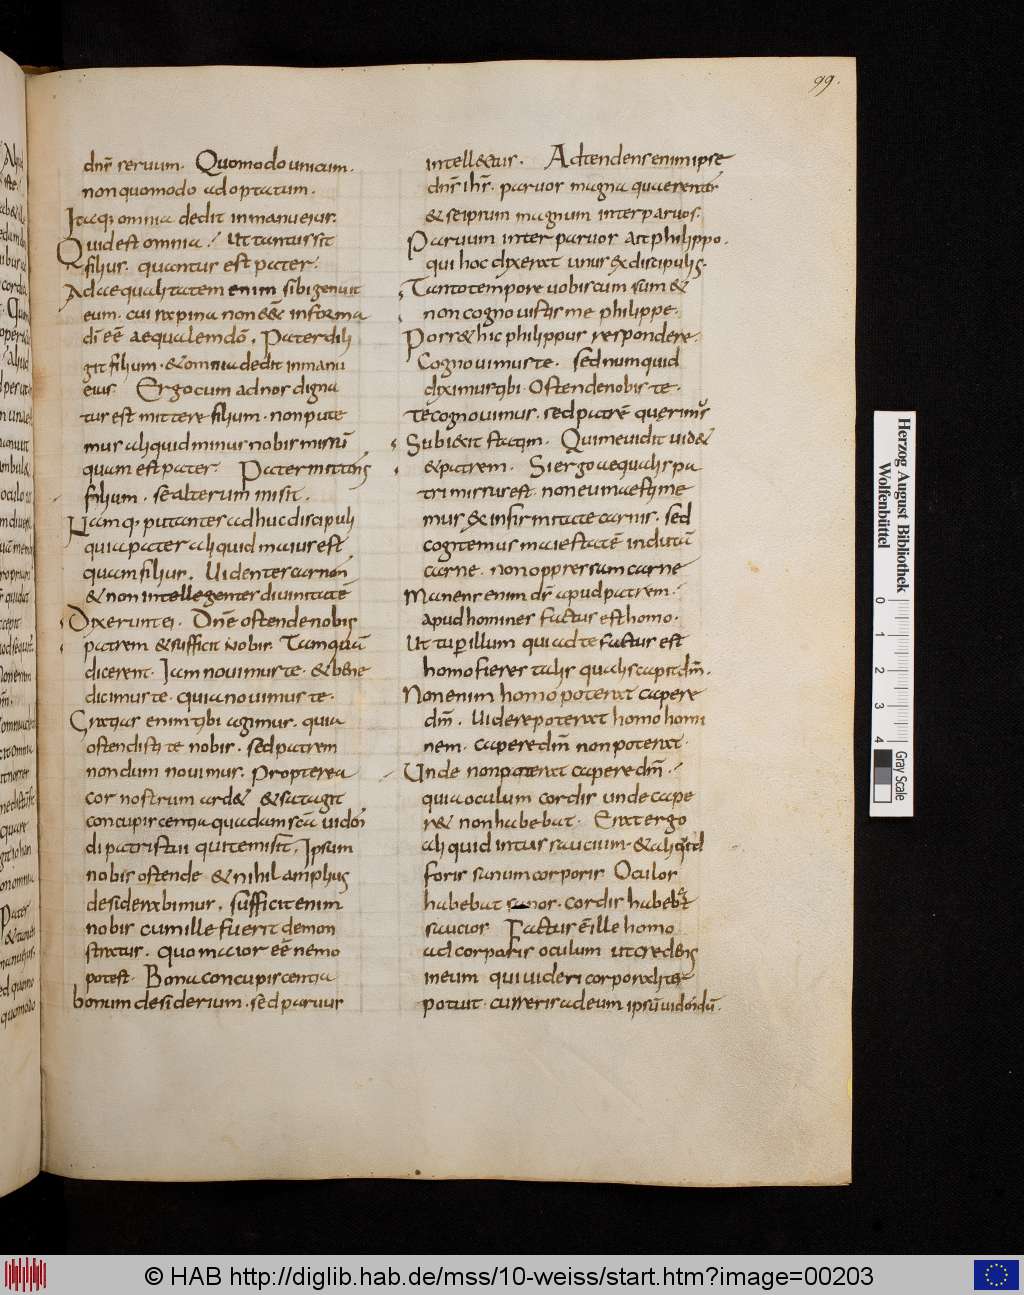 99.
dns seruum. Quomodo unicum.
non quomodo adoptatum.
Itaq; omnia dedit in manu eius.
Quid est omnia. Ut tantus sit
filius. quantus est pater.
Ad aequalitatem enim sibi genuit
eum. cui rapina non e&&; in forma
di eē aequalem dō. Pater dili
git filium. & omnia dedit in manu
eius. Ergo cum ad nos digna
tur est mittere filium. non pute
mus aliquid minus nobis missū
quam est pater. Pater mittens
filium. se alterum misit.
Namq; putantes adhuc discipuli
quia pater aliquid maius est
quam filius. Uidentes carnem
& non intellegentes diuinitatē
Dixerunt ei. Dne ostende nobis
patrem & sufficit nobis. Tamquā
dicerent. Iam nouimus te. & bene
dicimus te. quia nouimus te.
Gratias enim tibi agimus. quia
ostendisti te nobis. sed patrem
nondum nouimus. Propterea
cor nostrum ard& & satagit
concupiscentia quadam scā uidendi
di patris tui qui te misit. Ipsum
nobis ostende & nihil amplius
desiderabimus. sufficit enim
nobis cum ille fuerit demon
stratus. quo maior eē nemo
potest. Bona concupiscentia
bonum desiderium. sed paruus
intellectus. Adtendens enim ipse
dns ihs. paruos magna quaerentes
& se ipsum magnum inter paruos.
Paruum inter paruos ait philippo.
qui hoc dixerat unus ex discipulis.
Tanto tempore uobiscum sum &
non cognouistis me philippe.
Porro & hic philippus respondere.
Cognouimus te. sed numquid
diximus tibi. Ostende nobis te.
Te cognouimus. sed patrē querimus
Subiecit statim. Qui me uidit uid&
& patrem. Si ergo aequalis pa
tri missus est. non eum aestime
mus & infirmitate carnis. sed
cogitemus maiestatē indutā
carne. non oppressum carne
Manens enim ds apud patrem.
apud homines factus est homo.
Ut tu per illum qui ad te factus est
homo fieres talis qualis capit dm.
Non enim homo poterat capere
dm. Uidere poterat homo homi
nem. capere dm non poterat.
Unde non poterat capere dm.
quia oculum cordis unde cape
r& non habebat. Erat ergo
aliquid intus saucium. & aliquid
foris sanum corporis Oculos
habebat sanos. cordis habebat
saucios Factus ē ille homo
ad corporis oculum ut credens
in eum qui uideri corporaliter
potuit. curreris ad eum ipsū uidendū.
Herzog August Bibliothek
Wolfenbüttel
0 1 2 3 4
Gray Scale
© HAB http://diglib.hab.de/mss/10-weiss/start.htm?image=00203